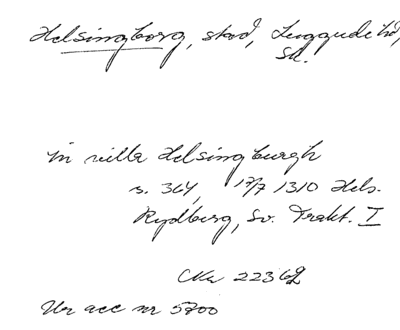 Helsingborg, stad, Luggude hd,
Sk.
in villa Helsingburgh
s. 364, 17/7 1310 Hels.
Rydberg, Sv. Trakt. I
Ur acc nr 5700